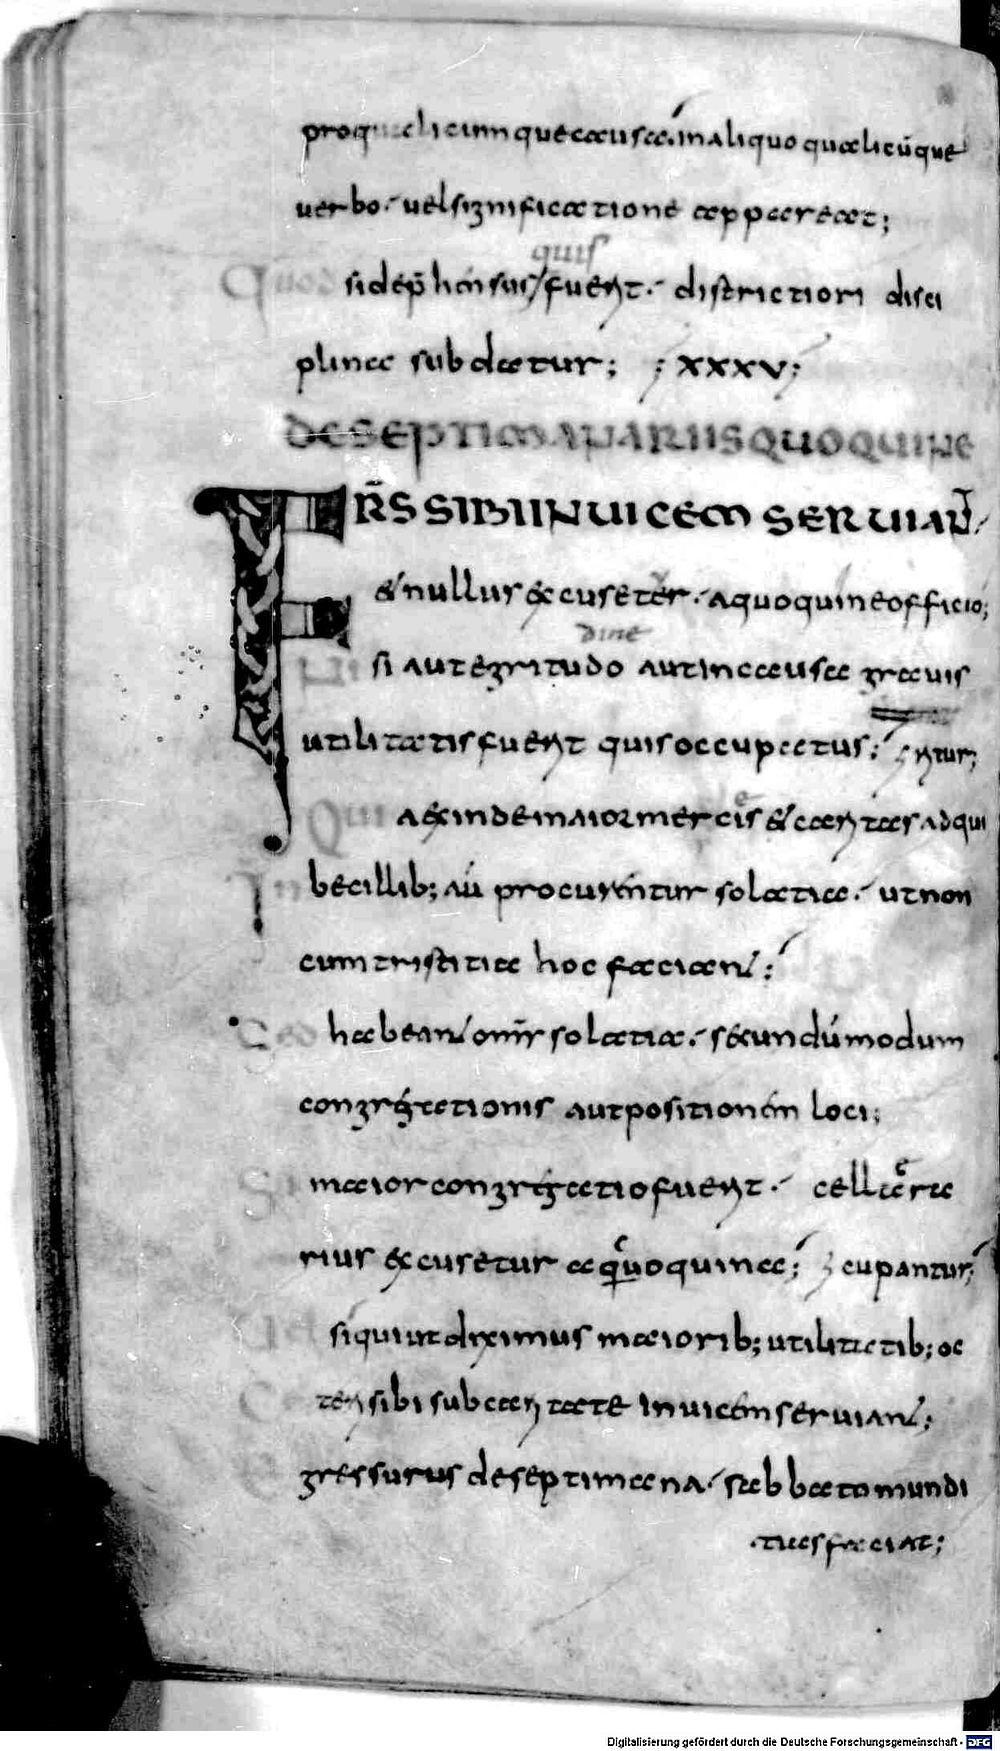 proqualicumque causa. in aliquo qualicūque
uerbo. uel significatione appareat;
quis
Quod si dep̄hensus / fuerit. districtiori disci
plinae subdatur; ; XXXV;
DE SEPTIMANARIIS QUOQUINE
FR̄S SIBI INUICEM SERUIAN̄
& nullus excusetur. a quoquine officio;
dine
Ni si aut egritudo aut in causa grauis
utilitatis fuerit quis occupatus; ; ritur;
Quia exinde maior mercis & caritas adqui
In becillib; aū procurentur solatia. ut non
cum tristitia hoc faciant;
Sed habeant om̄s solatia. secundū modum
congregationis aut positionem loci;
Si maior congregatio fuerit. cellara
rius excusetur a quoquina; ; cupantur;
si qui ut diximus maiorib; utilitatib; oc
Ceteri sibi sub caritate inuicem seruiant;
Egressurus de septimana. sabbato mundi
tias faciat;
Digitalisierung gefördert durch die Deutsche Forschungsgemeinschaft - DFG